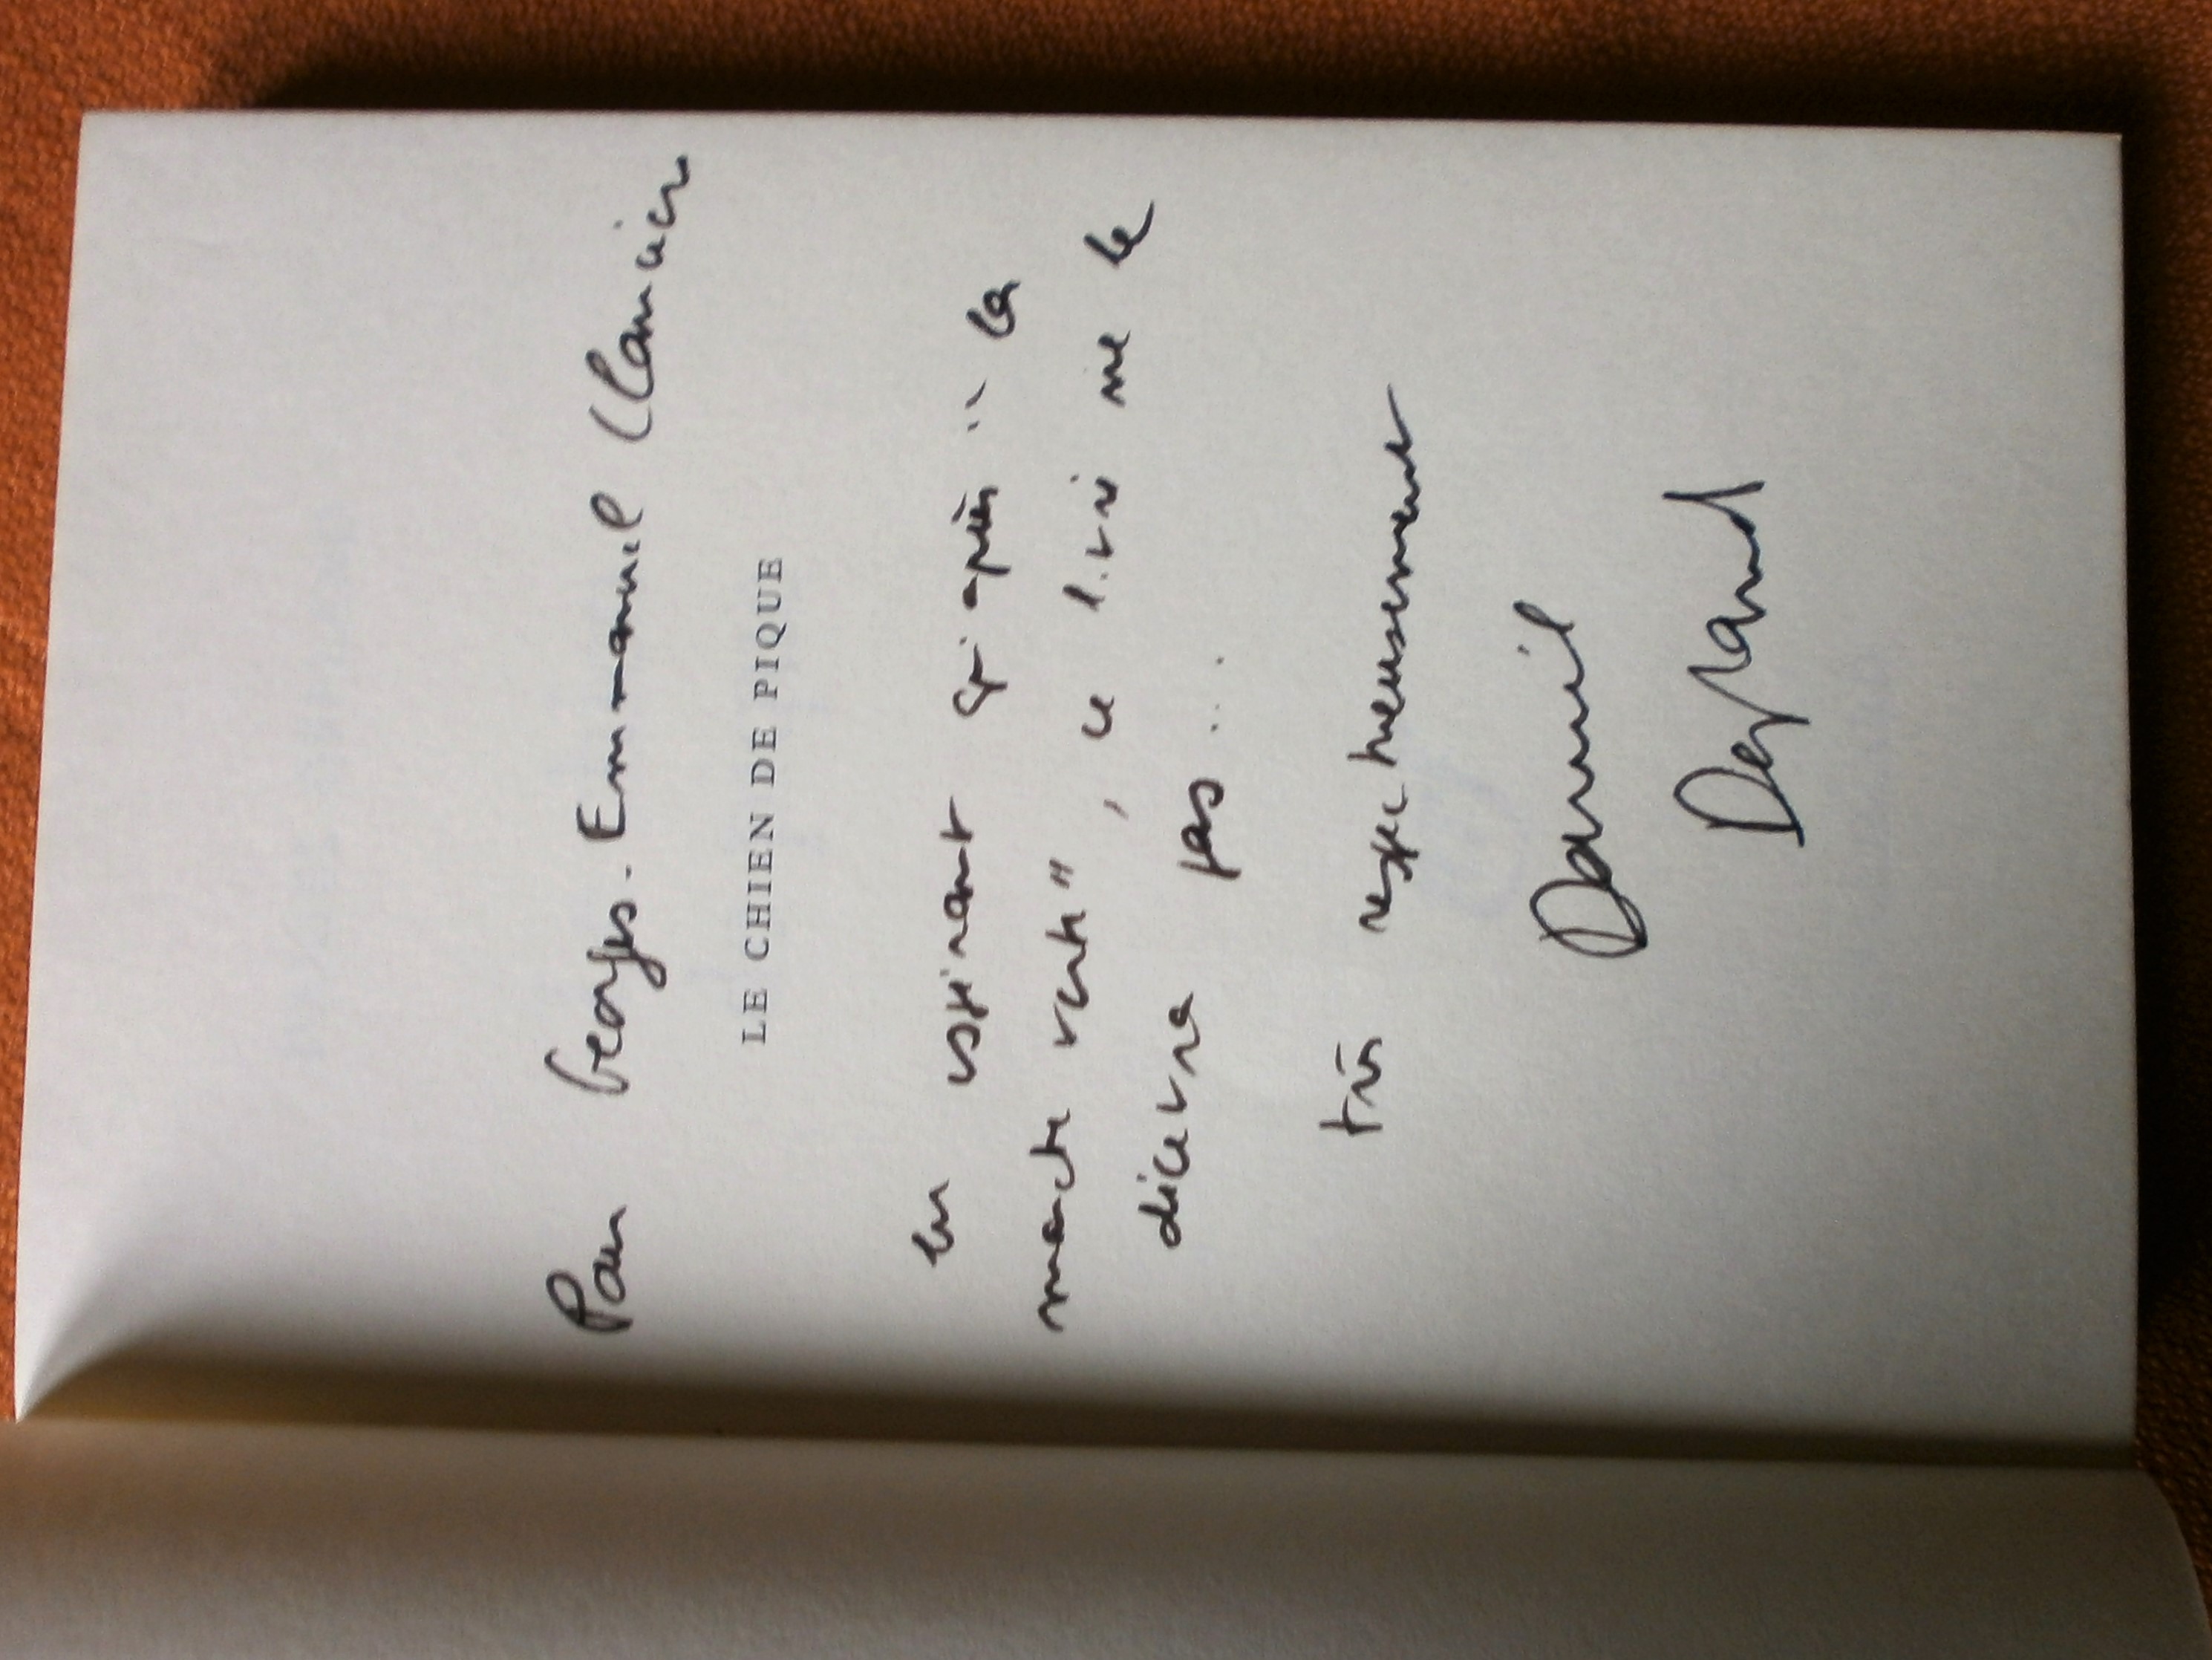 Pour Georges-Emmanuel Clancier
LE CHIEN DE PIQUE
en espérant qu'après "la
marche verte", ce livre ne le
décevra pas...
très respectueusement
Daniel